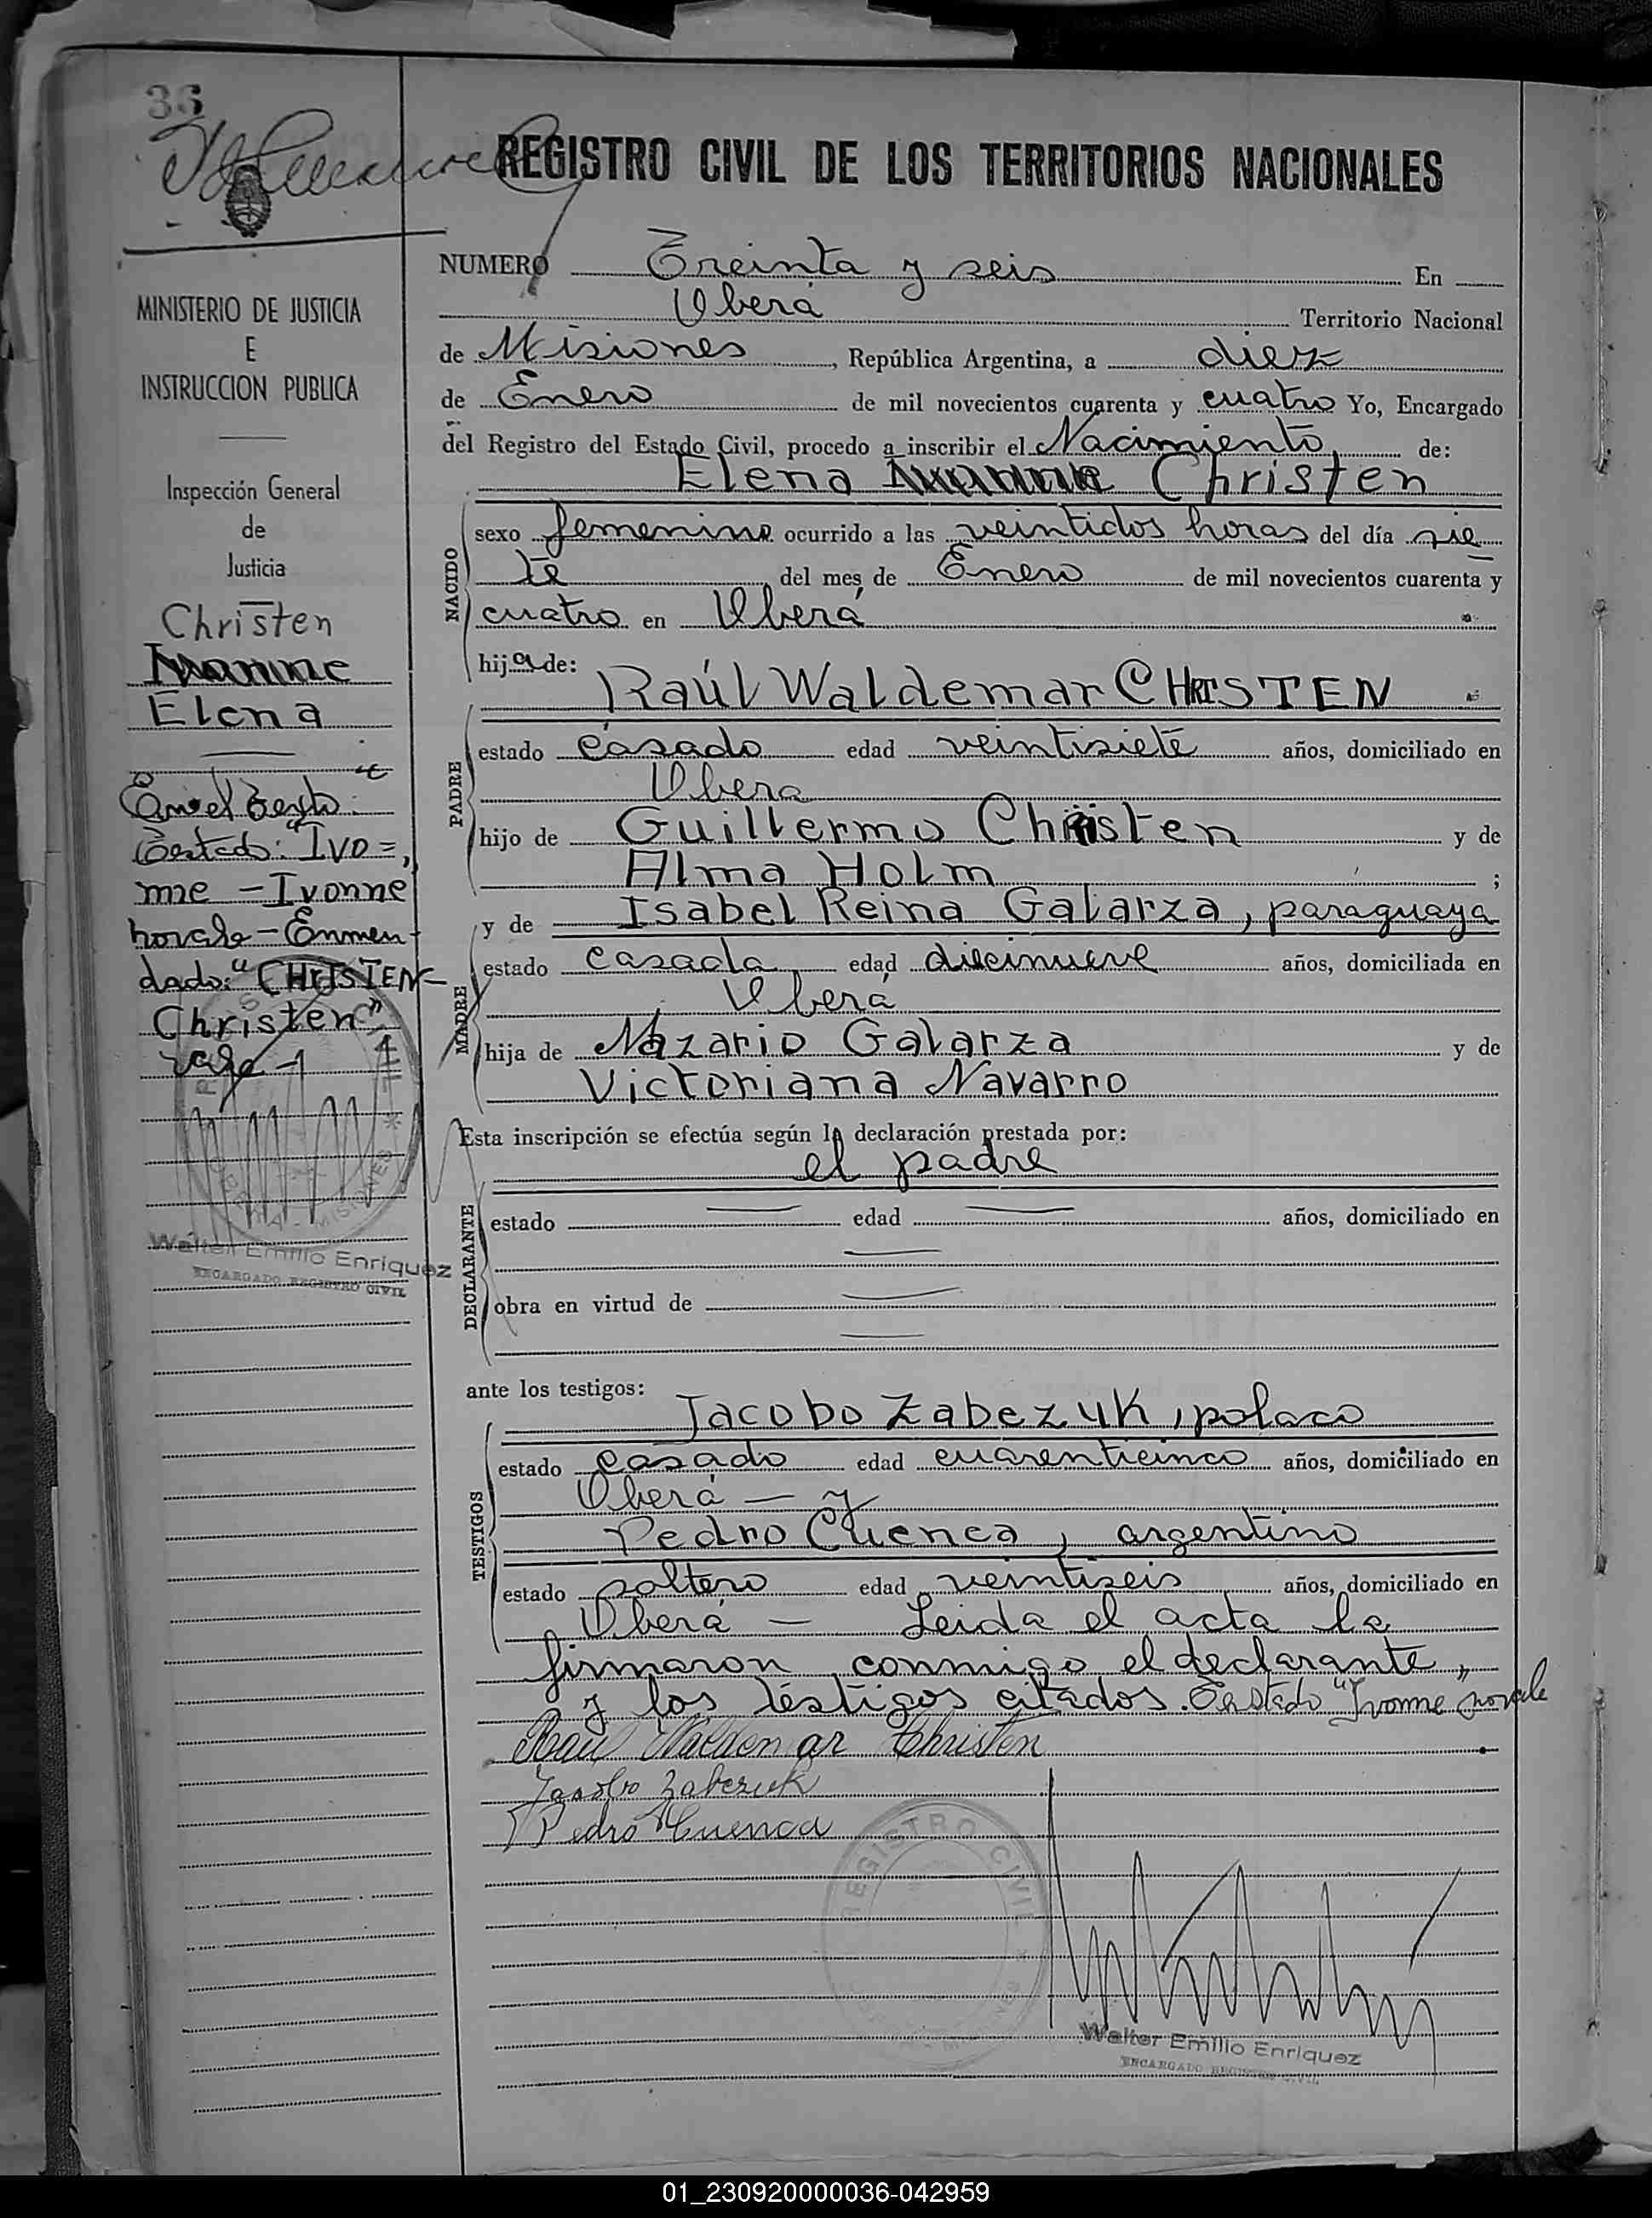 36
REGISTRO CIVIL DE LOS TERRITORIOS NACIONALES
NUMERO Treinta y seis En
Oberá Territorio Nacional
de Misiones, República Argentina, a diez
de Enero de mil novecientos cuarenta y cuatro Yo, Encargado
del Registro del Estado Civil, procedo a inscribir el Nacimiento de:
Elena Christen
NACIDO
sexo femenino ocurrido a las veintidos horas del día sie
te del mes de Enero de mil novecientos cuarenta y
cuatro en Oberá
hija de:
Raúl Waldemar CHRISTEN
PADRE
estado casado edad veintisiete años, domiciliado en
Obera
hijo de Guillermo Christen y de
Alma Holm ;
y de Isabel Reina Galarza, paraguaya
MADRE
estado casada edad diecinueve años, domiciliada en
Oberá
hija de Nazario Galarza y de
Victoriana Navarro
Esta inscripción se efectúa según la declaración prestada por:
el padre
DECLARANTE
estado edad años, domiciliado en
obra en virtud de
ante los testigos:
Jacobo Zabezuk, polaco
TESTIGOS
estado casado edad cuarenticinco años, domiciliado en
Oberá — y
Pedro Cuenca, argentino
estado soltero edad veintiseis años, domiciliado en
Oberá — Leida el acta la
firmaron conmigo el declarante,
y los testigos citados. Testado "Ivonne" no vale
Raul Waldemar Christen
Jacobo Zabezuk
Pedro Cuenca
REGISTRO CIVIL
Walter Emilio Enriquez
ENCARGADO REGISTRO CIVIL
MINISTERIO DE JUSTICIA
E
INSTRUCCION PUBLICA
Inspección General
de
Justicia
Christen
Elena
Testado: "Ivo=,
nne - Ivonne
no vale - Enmen
dado: "CHRISTEN-
Christen"
vale -
MISIONES
Walter Emilio Enriquez
ENCARGADO REGISTRO CIVIL
01_230920000036-042959